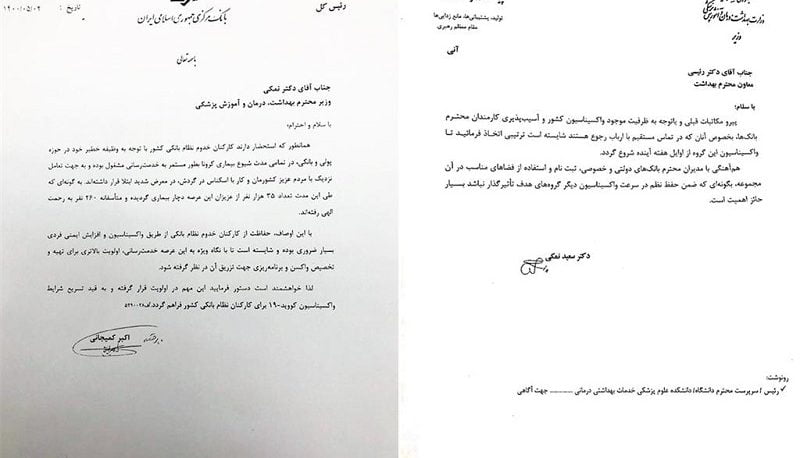 رئیس کل
تاریخ : ۱۴۰۰/۰۵/۰۲
بانک مرکزی جمهوری اسلامی ایران
باسمه تعالی
جناب آقای دکتر نمکی
وزیر محترم بهداشت، درمان و آموزش پزشکی
با سلام و احترام؛
همانطور که استحضار دارند کارکنان خدوم نظام بانکی کشور با توجه به وظیفه خطیر خود در حوزه
پولی و بانکی، در تمامی مدت شیوع بیماری کرونا بطور مستمر به خدمت‌رسانی مشغول بوده و به جهت تعامل
نزدیک با مردم عزیز کشورمان و کار با اسکناس در گردش، در معرض شدید ابتلا قرار داشته‌اند. به گونه‌ای که
طی این مدت تعداد ۳۵ هزار نفر از عزیزان این عرصه دچار بیماری گردیده و متأسفانه ۲۶۰ نفر به رحمت
الهی رفته‌اند.
با این اوصاف، حفاظت از کارکنان خدوم نظام بانکی از طریق واکسیناسیون و افزایش ایمنی فردی
بسیار ضروری بوده و شایسته است تا با نگاه ویژه به این عرصه خدمت‌رسانی، اولویت بالاتری برای تهیه و
تخصیص واکسن و برنامه‌ریزی جهت تزریق آن در نظر گرفته شود.
لذا خواهشمند است دستور فرمایید این مهم در اولویت قرار گرفته و به قید تسریع شرایط
واکسیناسیون کووید-۱۹ برای کارکنان نظام بانکی کشور فراهم گردد.
اکبر کمیجانی
وزارت بهداشت، درمان و آموزش پزشکی
وزیر
تولید، پشتیبانی‌ها، مانع زدایی‌ها
مقام معظم رهبری
آنی
جناب آقای دکتر رئیسی
معاون محترم بهداشت
با سلام؛
پیرو مکاتبات قبلی و باتوجه به ظرفیت موجود واکسیناسیون کشور و آسیب‌پذیری کارمندان محترم
بانک‌ها، بخصوص آنان که در تماس مستقیم با ارباب رجوع هستند شایسته است ترتیبی اتخاذ فرمائید تا
واکسیناسیون این گروه از اوایل هفته آینده شروع گردد.
هم‌آهنگی با مدیران محترم بانک‌های دولتی و خصوصی، ثبت نام و استفاده از فضاهای مناسب در آن
مجموعه، بگونه‌ای که ضمن حفظ نظم در سرعت واکسیناسیون دیگر گروه‌های هدف تأثیرگذار نباشد بسیار
حائز اهمیت است.
دکتر سعید نمکی
رونوشت:
✓ رئیس / سرپرست محترم دانشگاه/ دانشکده علوم پزشکی خدمات بهداشتی درمانی ............ جهت آگاهی